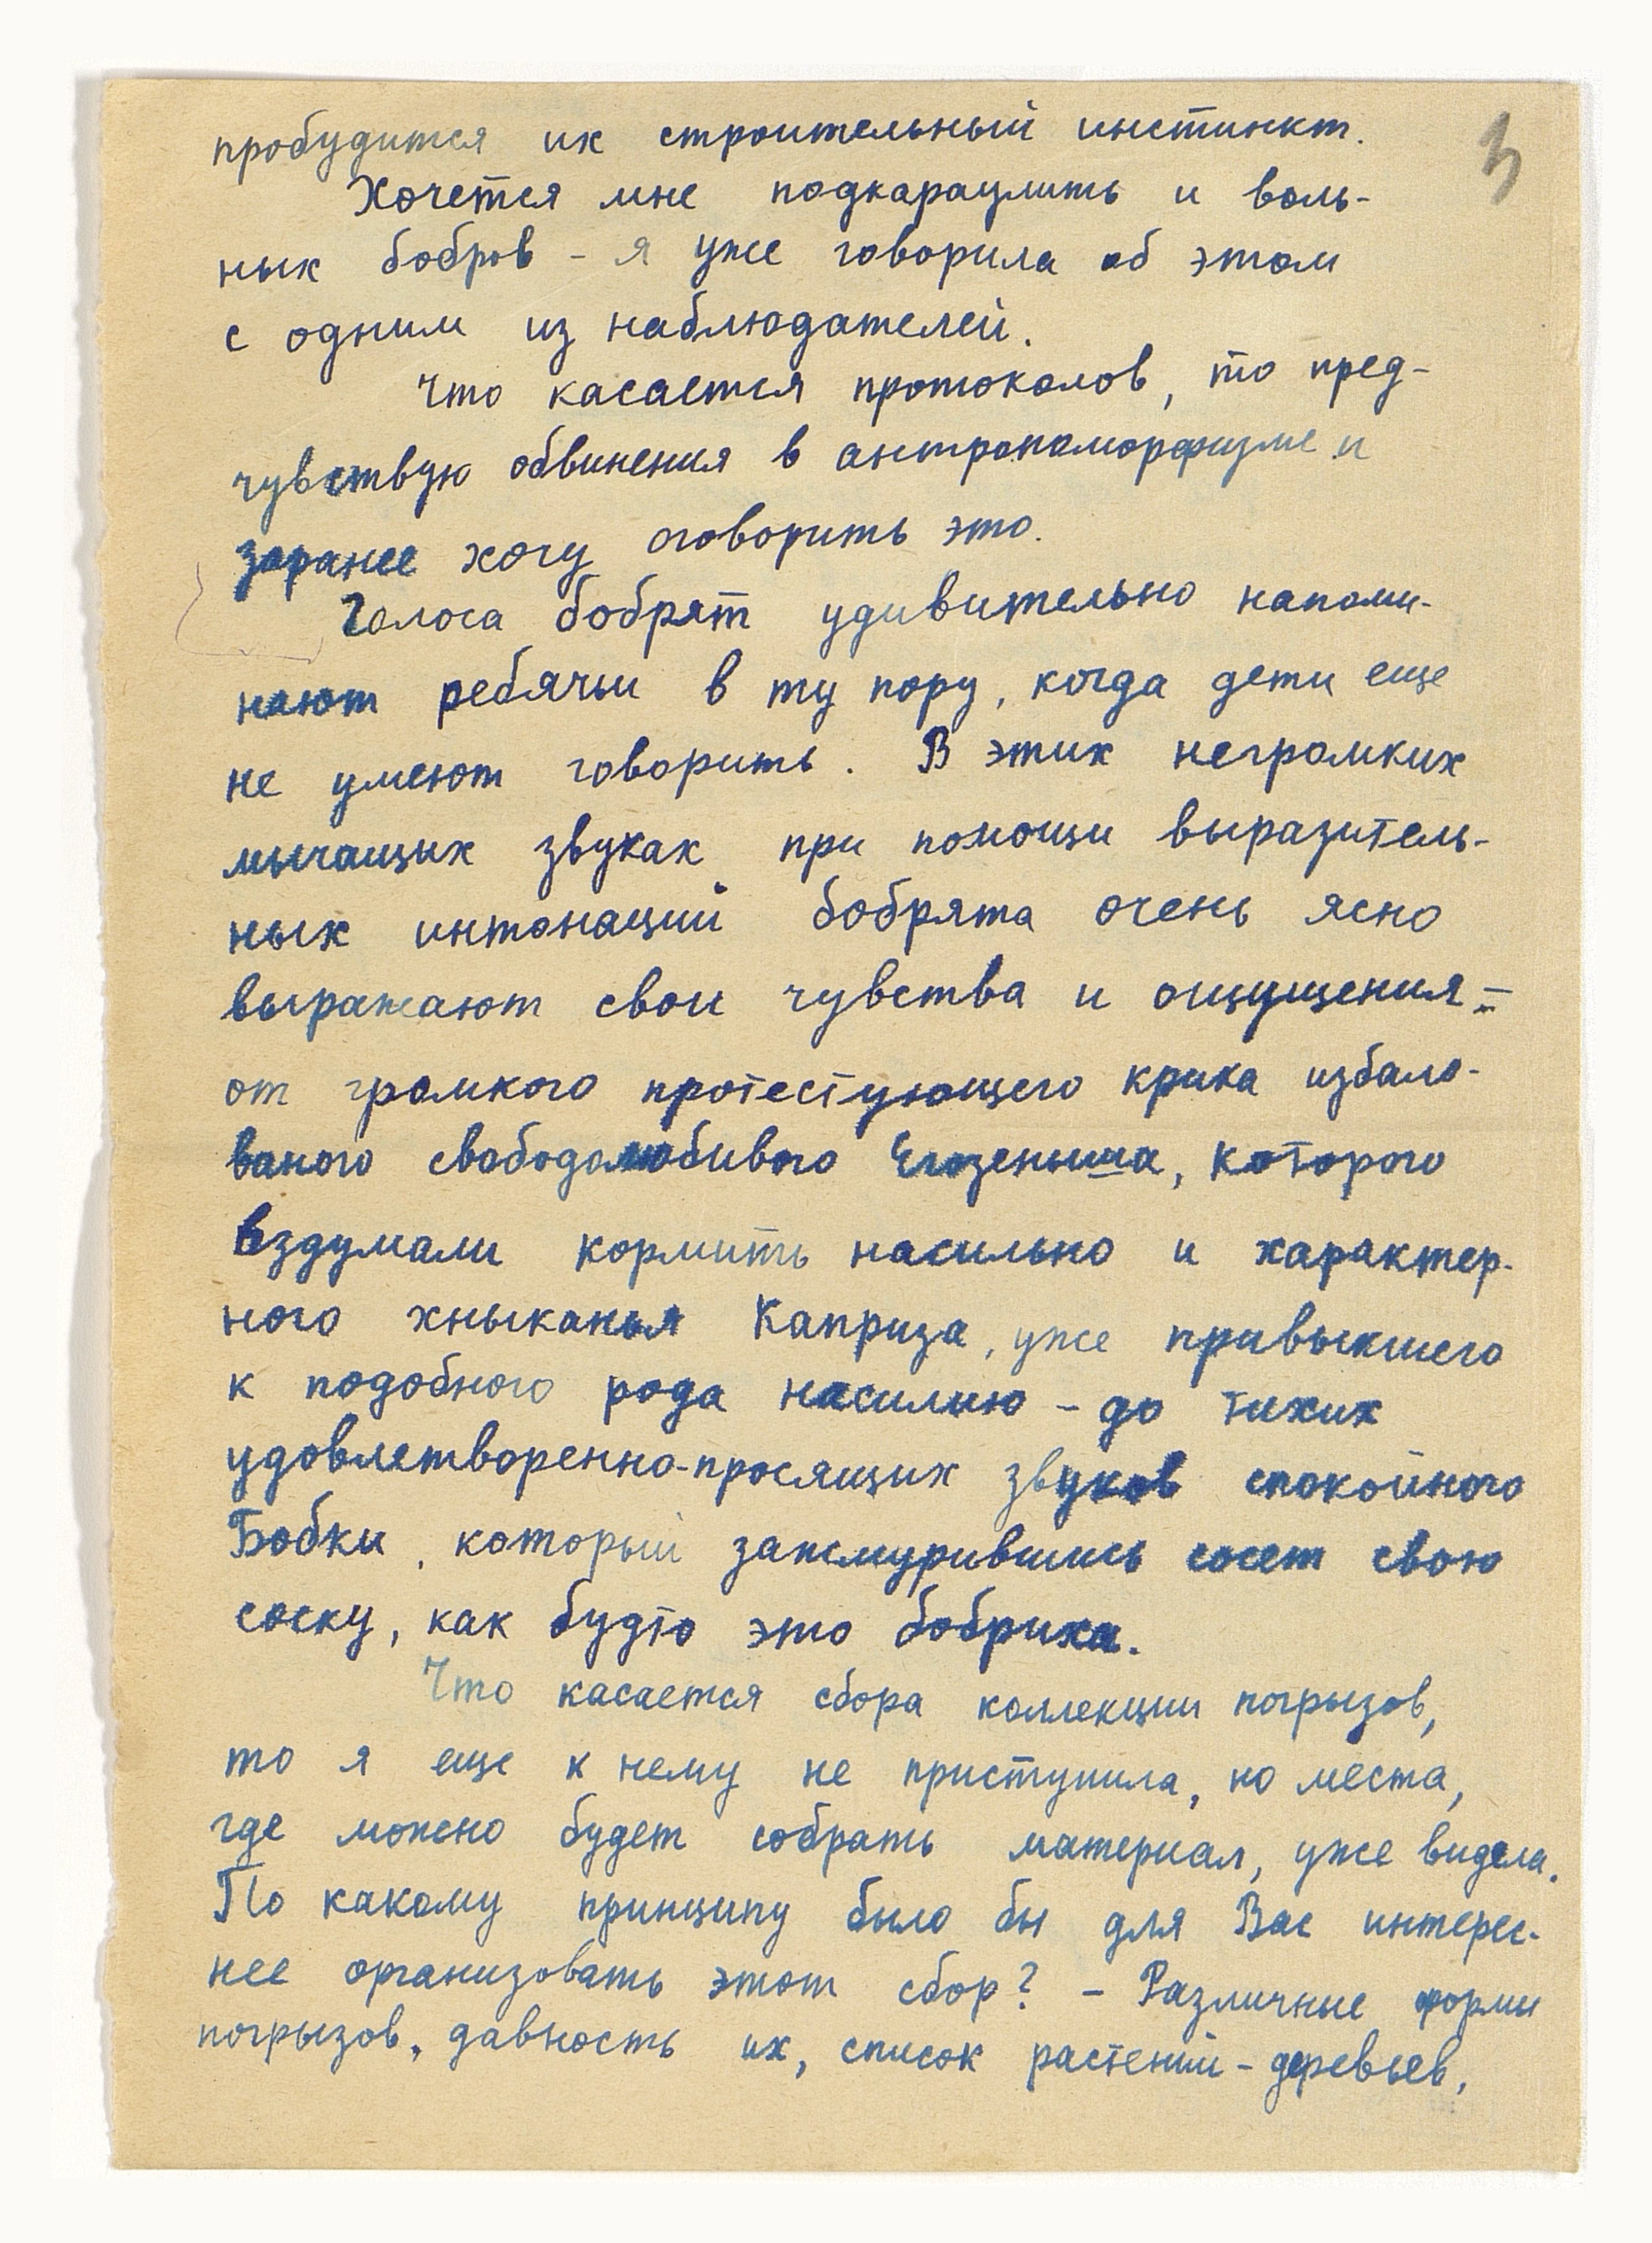 3
пробудится их строительный инстинкт.
Хочется мне подкараулить и воль-
ных бобров - я уже говорила об этом
с одним из наблюдателей.
Что касается протоколов, то пред-
чувствую обвинения в антропоморфизме и
заранее хочу оговорить это.
Голоса бобрят удивительно напоми-
нают ребячьи в ту пору, когда дети еще
не умеют говорить. В этих негромких
мычащих звуках при помощи выразитель-
ных интонаций бобрята очень ясно
выражают свои чувства и ощущения -
от громкого протестующего крика избало-
ваного свободолюбивого Егозеныша, которого
вздумали кормить насильно и характер-
ного хныканья Каприза, уже привыкшего
к подобного рода насилию - до тихих
удовлетворенно-просящих звуков спокойного
Бобки, который зажмурившись сосет свою
соску, как будто это бобриха.
Что касается сбора коллекции погрызов,
то я еще к нему не приступила, но места,
где можно будет собрать материал, уже видела.
По какому принципу было бы для Вас интерес-
нее организовать этот сбор? - Различные формы
погрызов, давность их, список растений - деревьев,